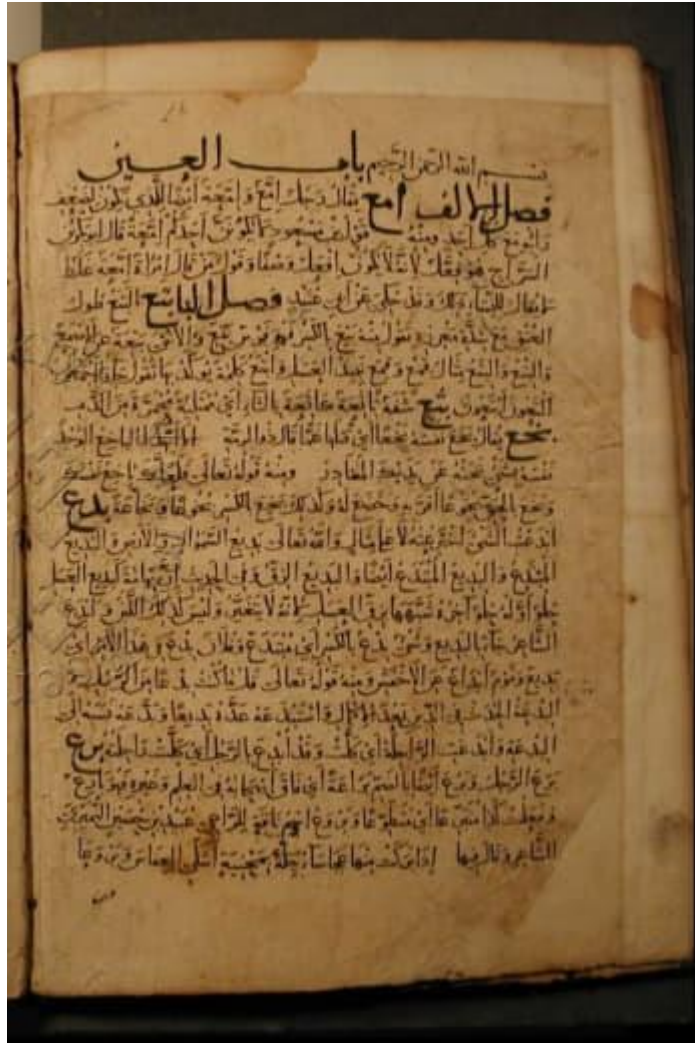 بسم الله الرحمن الرحيم باب العين
فصل الالف امع يقال رجل امع وامعة ايضا للذي يكون لضعف
كل احد ومنه قول ابن مسعود لا يكونن احدكم امعة قال ابو بكر
السراج هو فعل لانه لا يكون افعل وصفا وقول من قال امراة امعة غلط
لا يقال للنساء ذلك وقد حكي عن ابي عبيد فصل الباء بتع البتع طول
العنق مع شدة مغرزه تقول منه بتع بالكسر فهو فرس بتع والانثى بتعة عن الاصمعي
والبتع والبتع مثال قمع وقمع نبيذ العسل وابتع كلمة يوكد بها تقول جاءوا اجمعون
اكتعون ابتعون بثع شفة باثعة كاثعة بالثاء اي ممتلئة محمرة من الدم
بخع يقال بخع نفسه بخعا اي قتلها غما قال ذو الرمة الا ايهذا الباخع الوجد
نفسه بشيء نحته عن يديه المقادر ومنه قوله تعالى فلعلك باخع نفسك
وبخع بالحق بخوعا اقر به وخضع له وكذلك بخع بالكسر بخوعا وبخاعة بدع
ابدعت الشيء اخترعته لا على مثال والله تعالى بديع السموات والارض والبديع
المبتدع والبديع المبتدع ايضا والبديع الزق وفي الحديث ان تهامة كبديع العسل
حلو اوله حلو اخره شبهها بزق العسل لانه لا يتغير وليس كذلك اللبن وابدع
الشاعر جاء بالبديع وشيء بدع بالكسر اي مبتدع وفلان بدع في هذا الامر اي
بديع وقوم ابداع عن الاخفش ومنه قوله تعالى قل ما كنت بدعا من الرسل
البدعة الحدث في الدين بعد الاكمال واستبدعه عده بديعا وبدعه نسبه الى
البدعة وابدعت الراحلة اي كلت وقد ابدع بالرجل اي كلت راحلته برع
برع الرجل وبرع ايضا بالضم براعة اي فاق اصحابه في العلم وغيره فهو بارع
وفعلت كذا متبرعا اي متطوعا وبروع اسم ناقة للراعي عبيد بن حصين النميري
الشاعر وقال فيها اذا بركت منها عجاساء جلة بمحنية اشلى العفاس وبروعا